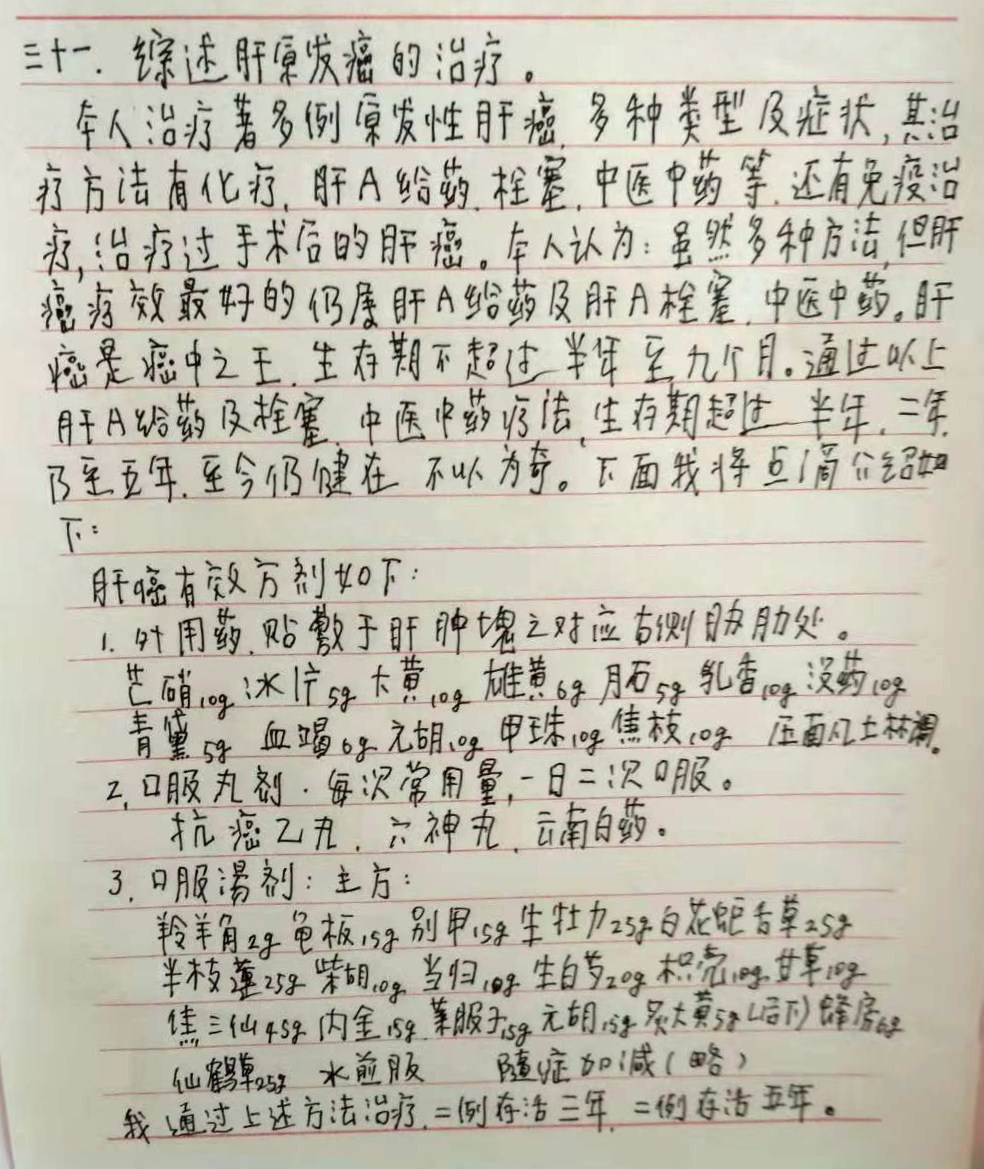 三十一. 综述肝原发癌的治疗。
本人治疗著多例原发性肝癌, 多种类型及症状, 其治
疗方法有化疗, 肝A给药、栓塞, 中医中药等, 还有免疫治
疗, 治疗过手术后的肝癌。本人认为: 虽然多种方法, 但肝
癌疗效最好的仍属肝A给药及肝A栓塞, 中医中药。肝
癌是癌中之王, 生存期不超过半年至九个月。通过以上
肝A给药及栓塞, 中医中药疗法, 生存期超过半年, 二年
乃至五年, 至今仍健在 不以为奇。下面我将点滴介绍如
下:
肝癌有效方剂如下:
1. 外用药, 贴敷于肝肿块之对应右侧胁肋处。
芒硝10g 冰片5g 大黄10g 雄黄6g 月石5g 乳香10g 没药10g
青黛5g 血竭6g 元胡10g 甲珠10g 焦枝10g 压面凡士林调。
2, 口服丸剂. 每次常用量, 一日二次口服。
抗癌乙丸, 六神丸, 云南白药。
3, 口服汤剂: 主方:
羚羊角2g 龟板15g 别甲15g 生牡力25g 白花蛇舌草25g
半枝莲25g 柴胡10g 当归10g 生白芍20g 枳壳10g 甘草10g
焦三仙45g 内金15g 莱服子15g 元胡15g 炙大黄5g(后下) 蜂房6g
仙鹤草25g 水煎服 随症加减(略)
我通过上述方法治疗, 二例存活三年, 二例存活五年。